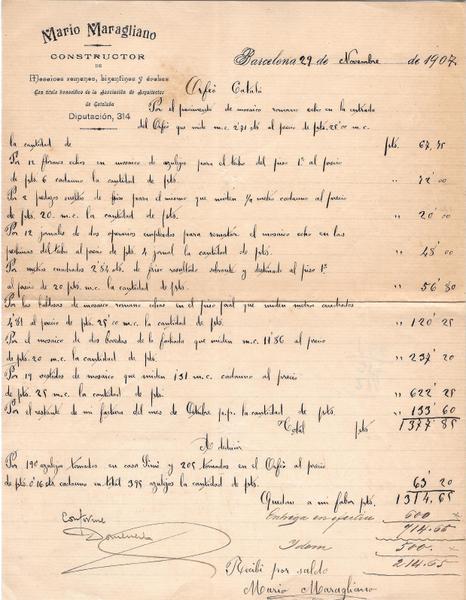 Mario Maragliano
CONSTRUCTOR
DE
Mosaicos romanos, bizantinos y árabes
Con título honorífico de la Asociación de Arquitectos
de Cataluña
Diputación, 314
Barcelona 29 de Novembre de 1907
Orfeó Català
Por el pavimento de mosaico romano echo en la entrada
del Orfeó que mide m.c. 2'71 al precio de pts. 25'00 m.c.
la cantidad de pts. 67,75
Por 12 florones echos en mosaico de azulejos para el techo del piso 1º al precio
de pts. 6 cadauno la cantidad de pts. " 72'00
Por 2 pedazos de friso para el mismo que miden ½ metro cadauno al precio
de pts. 20. m.c. la cantidad de pts. " 20'00
Por 12 jornales de dos operarios empleados para el mosaico echo en las
del techo al precio de pts. 4 jornal la cantidad de pts. " 48'00
Por metros cuadrados 2'84 de friso sobrante y destinado al piso 1º
al precio de 20 pts. m.c. la cantidad de pts. " 56'80
Por las baldosas de mosaico romano echas en el piso que miden metros cuadrados
4'81 al precio de pts. 25'00 m.c. la cantidad de pts. " 120'25
Por el mosaico de dos de la fachada que miden m.c. 11'86 al precio
de pts. 20 m.c. la cantidad de pts. " 237'20
Por 19 vestidos de mosaico que miden 1'31 m.c. cadauno al precio
de pts. 25 m.c. la cantidad de pts. " 622'25
Por el restante de mi factura del mes de Octubre p.p. la cantidad de pts. " 133'60
Total pts. 1377'85
A deducir
Por 190 azulejos tomados en casa y 205 tomados en el Orfeó al precio
de pts. 0'16 cadauno en total 395 azulejos la cantidad de pts. 63'20
Quedan a mi fabor pts. 1314.65
Entrega en efectivo 600
714.65
Idem 500.
214.65
Conforme
Recibí por saldo
Mario Maragliano